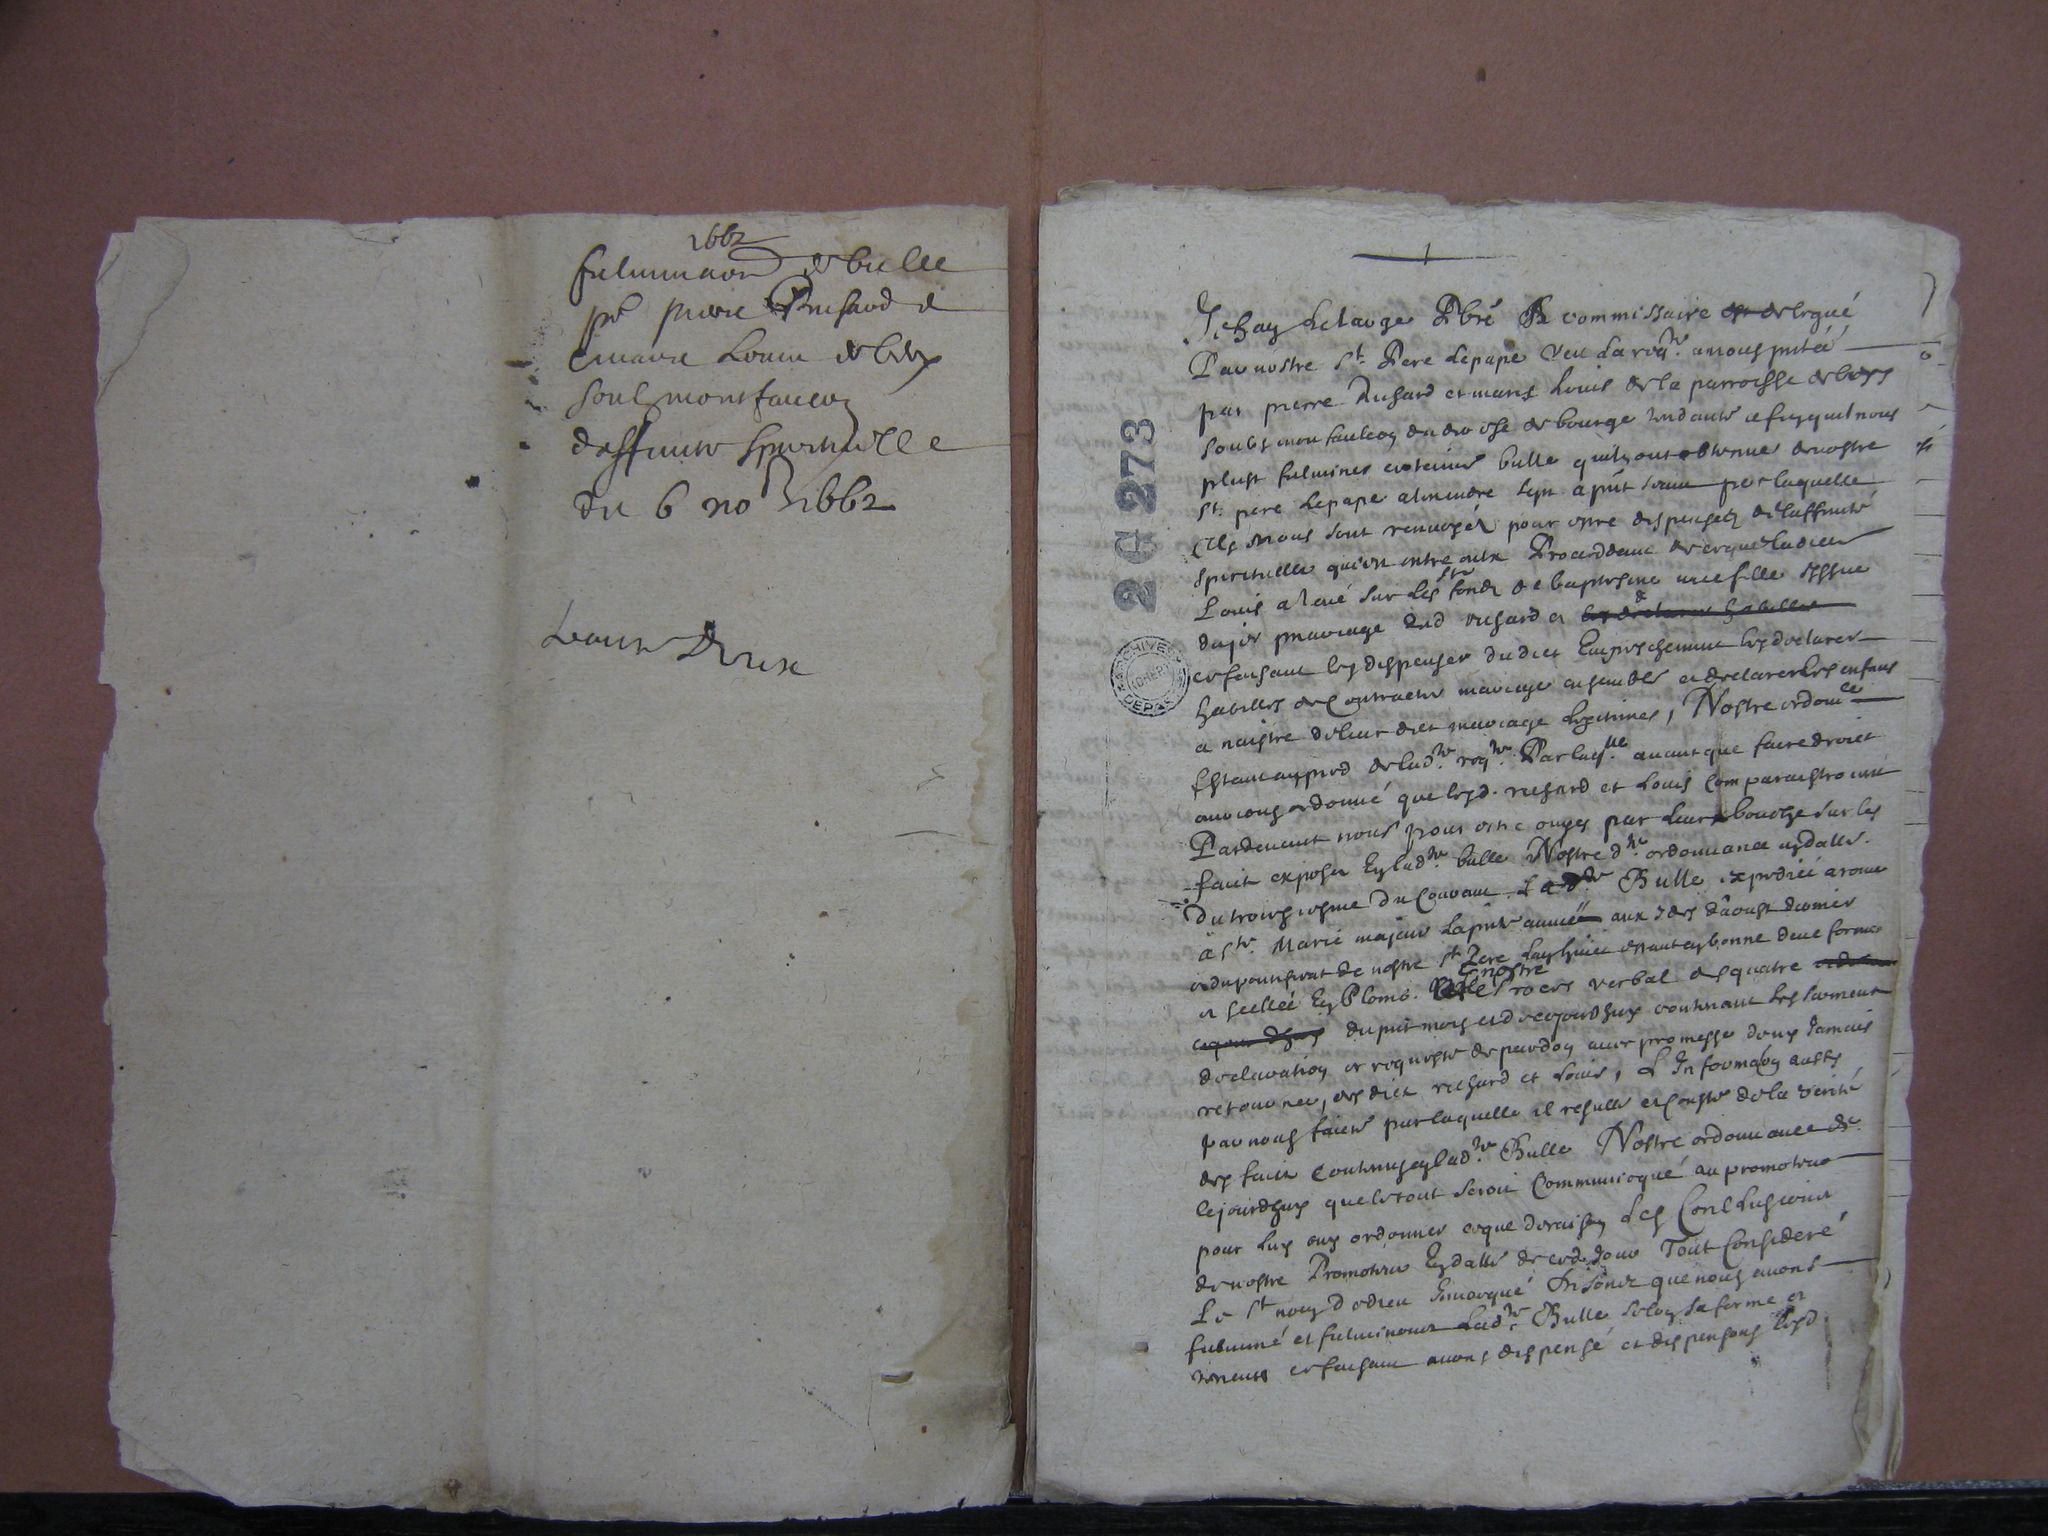 1662
fulminaon de bulle
pr pierre Richard et
marie Louis de bux
soubz montfaucon
daffinite spirituelle
du 6 no 1662
1
Jehan Pbre commissaire delegué
Par nostre St Pere le pape Veu la reqte a nous pntéé
par pierre Richard et marie Louis de la parroisse de
soubz montfaulcon du diocese de bourge tendante ace quil nous
plust fulminer certeine bulle quilz ont obtenue de nostre
St pere le pape alexandre sept a pnt seant par laquelle
Ilz nous sont renvoyéz pour estre dispensez de laffinité
spirituelle qui est entre eulx Proceddant de ce que ladicte
Louis a levé sur les fondz de baptesme une fille issue
du pr mariage dud richard et
ce faisant les dispenser dudict Empeschement les declarer
habilles de Contracter mariage ensemble et declarer les enfans
a naistre de leur dict mariage legitimes, Nostre ordonce
Estant au pied de lade reqte Par laqlle avant que faire droict
aurions ordonné que lesd. richard et Louis comparaistroient
Pardevant nous pour estre ouys par leur bouche sur les
faits exposez En lade bulle Nostre de ordonnance en datte
du troisiesme du Courant Lade Bulle expediéé a rome
a Ste Marie majeur la pnte année aux ides daoust dernier
et du pontificat de nostre St Pere Lan huict estant en bonne deue forme
et scelléé En Plomb. nostre Proces verbal de quatre
du pnt mois et de cejourdhuy contenant les serment
declaration et requeste de pardon avec promesse dens Jamais
retourner, desdict richard et Louis, L Information aussy
par nous faicte par laquelle il resulte et conste de la verité
des faits Contenus en lade Bulle Nostre ordonnance de
cejourdhuy que le tout seroit Communicqué au promoteur
pour luy ouy ordonner ce que de raison Les Conclusions
de nostre Promoteur En datte de ced. Jour Tout Consideré
Le St nom de dieu Invocqué Disons que nous avons
fulminé et fulminons Lade Bulle selon sa forme et
teneur ce faisant avons dispensé et dispensons lesd.
2 G 273
ARCHIVES
CHER
DEPART